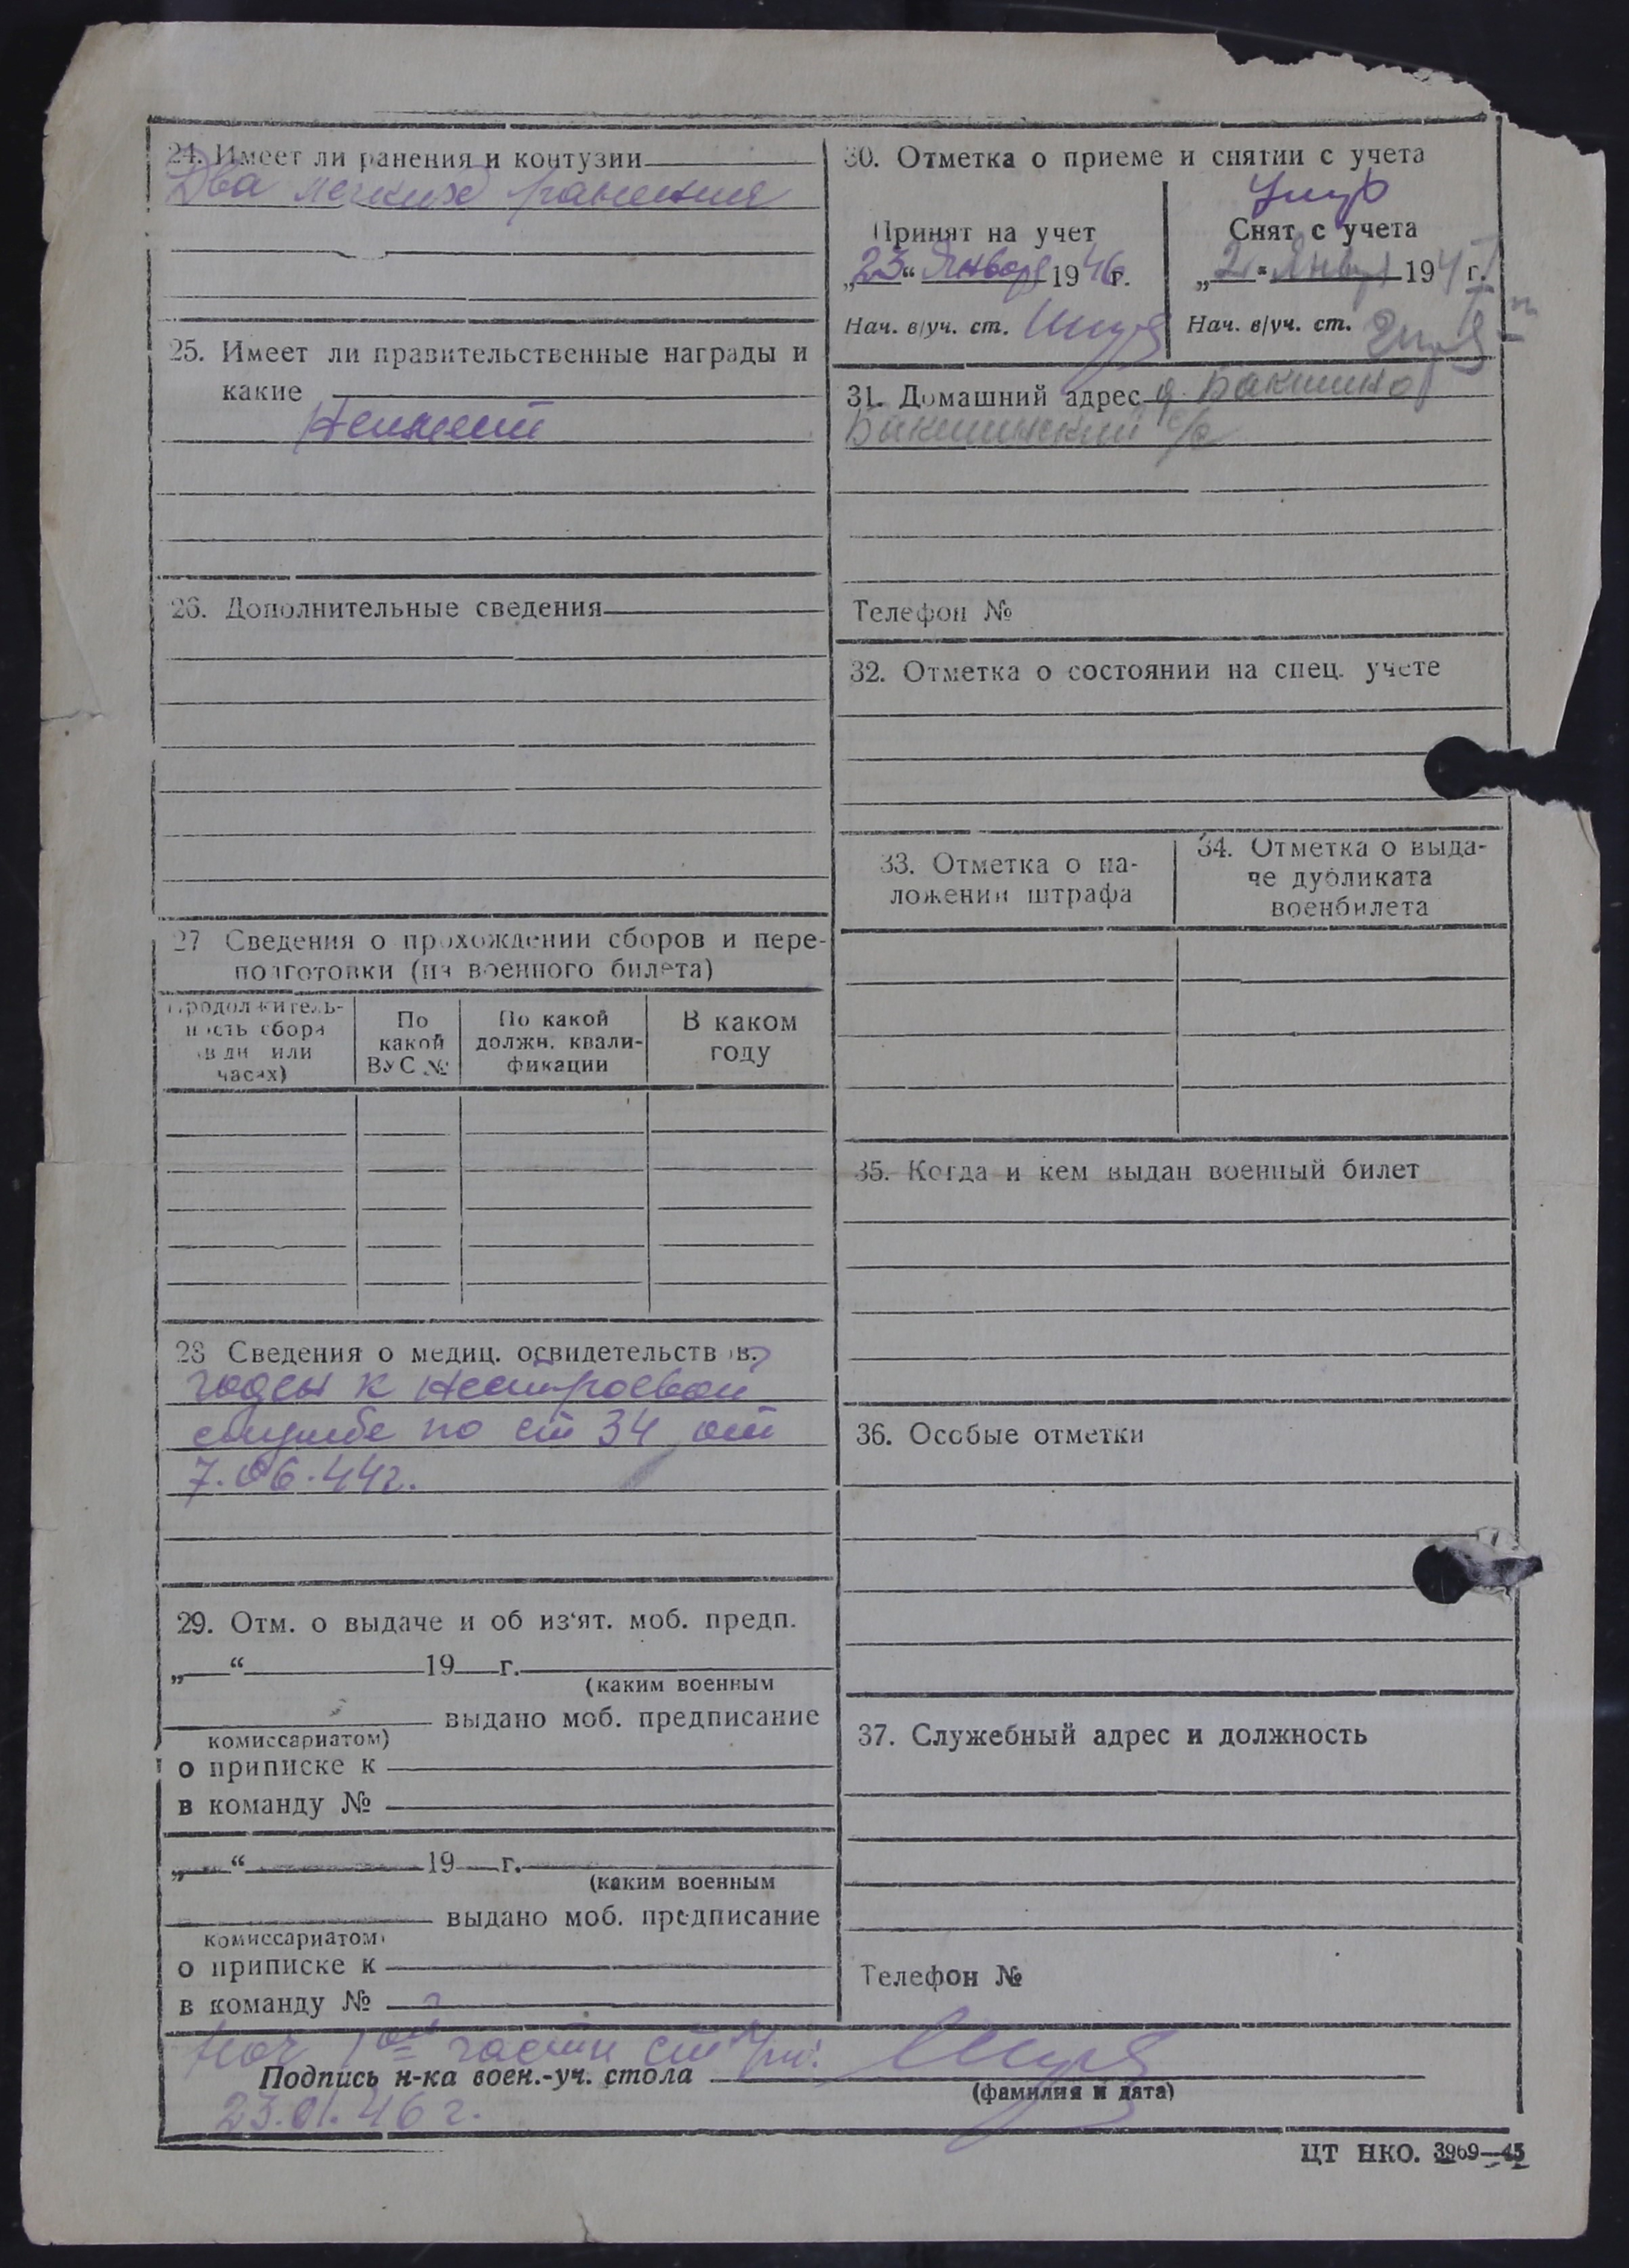 24. Имеет ли ранения и контузии
Два легких ранения
25. Имеет ли правительственные награды и
какие
Неимеет
26. Дополнительные сведения
27 Сведения о прохождении сборов и пере-
подготовки (из военного билета)
Продолжитель-
ность сбора
(в дн или
часах)
По
какой
ВУС №
По какой
должн. квали-
фикации
В каком
году
28 Сведения о медиц. освидетельств в.
годен к нестроевой
службе по ст 34 от
7.06.44г.
29. Отм. о выдаче и об из'ят. моб. предп.
„ “ 19 г.
(каким военным
выдано моб. предписание
комиссариатом)
о приписке к
в команду №
„ “ 19 г.
(каким военным
выдано моб. предписание
комиссариатом)
о приписке к
в команду №
30. Отметка о приеме и снятии с учета
Принят на учет
„23“ Января 1946г.
Нач. в/уч. ст.
Снят с учета
„2“ Января 194 г.
Нач. в/уч. ст.
31. Домашний адрес д Бакшино
Бакшинский с/с
Телефон №
32. Отметка о состоянии на спец. учете
33. Отметка о на-
ложении штрафа
34. Отметка о выда-
че дубликата
военбилета
35. Когда и кем выдан военный билет
36. Особые отметки
37. Служебный адрес и должность
Телефон №
Нач 1ой части ст
Подпись н-ка воен.-уч. стола
(фамилия и дата)
23.01.46г.
ЦТ НКО. 3969—45